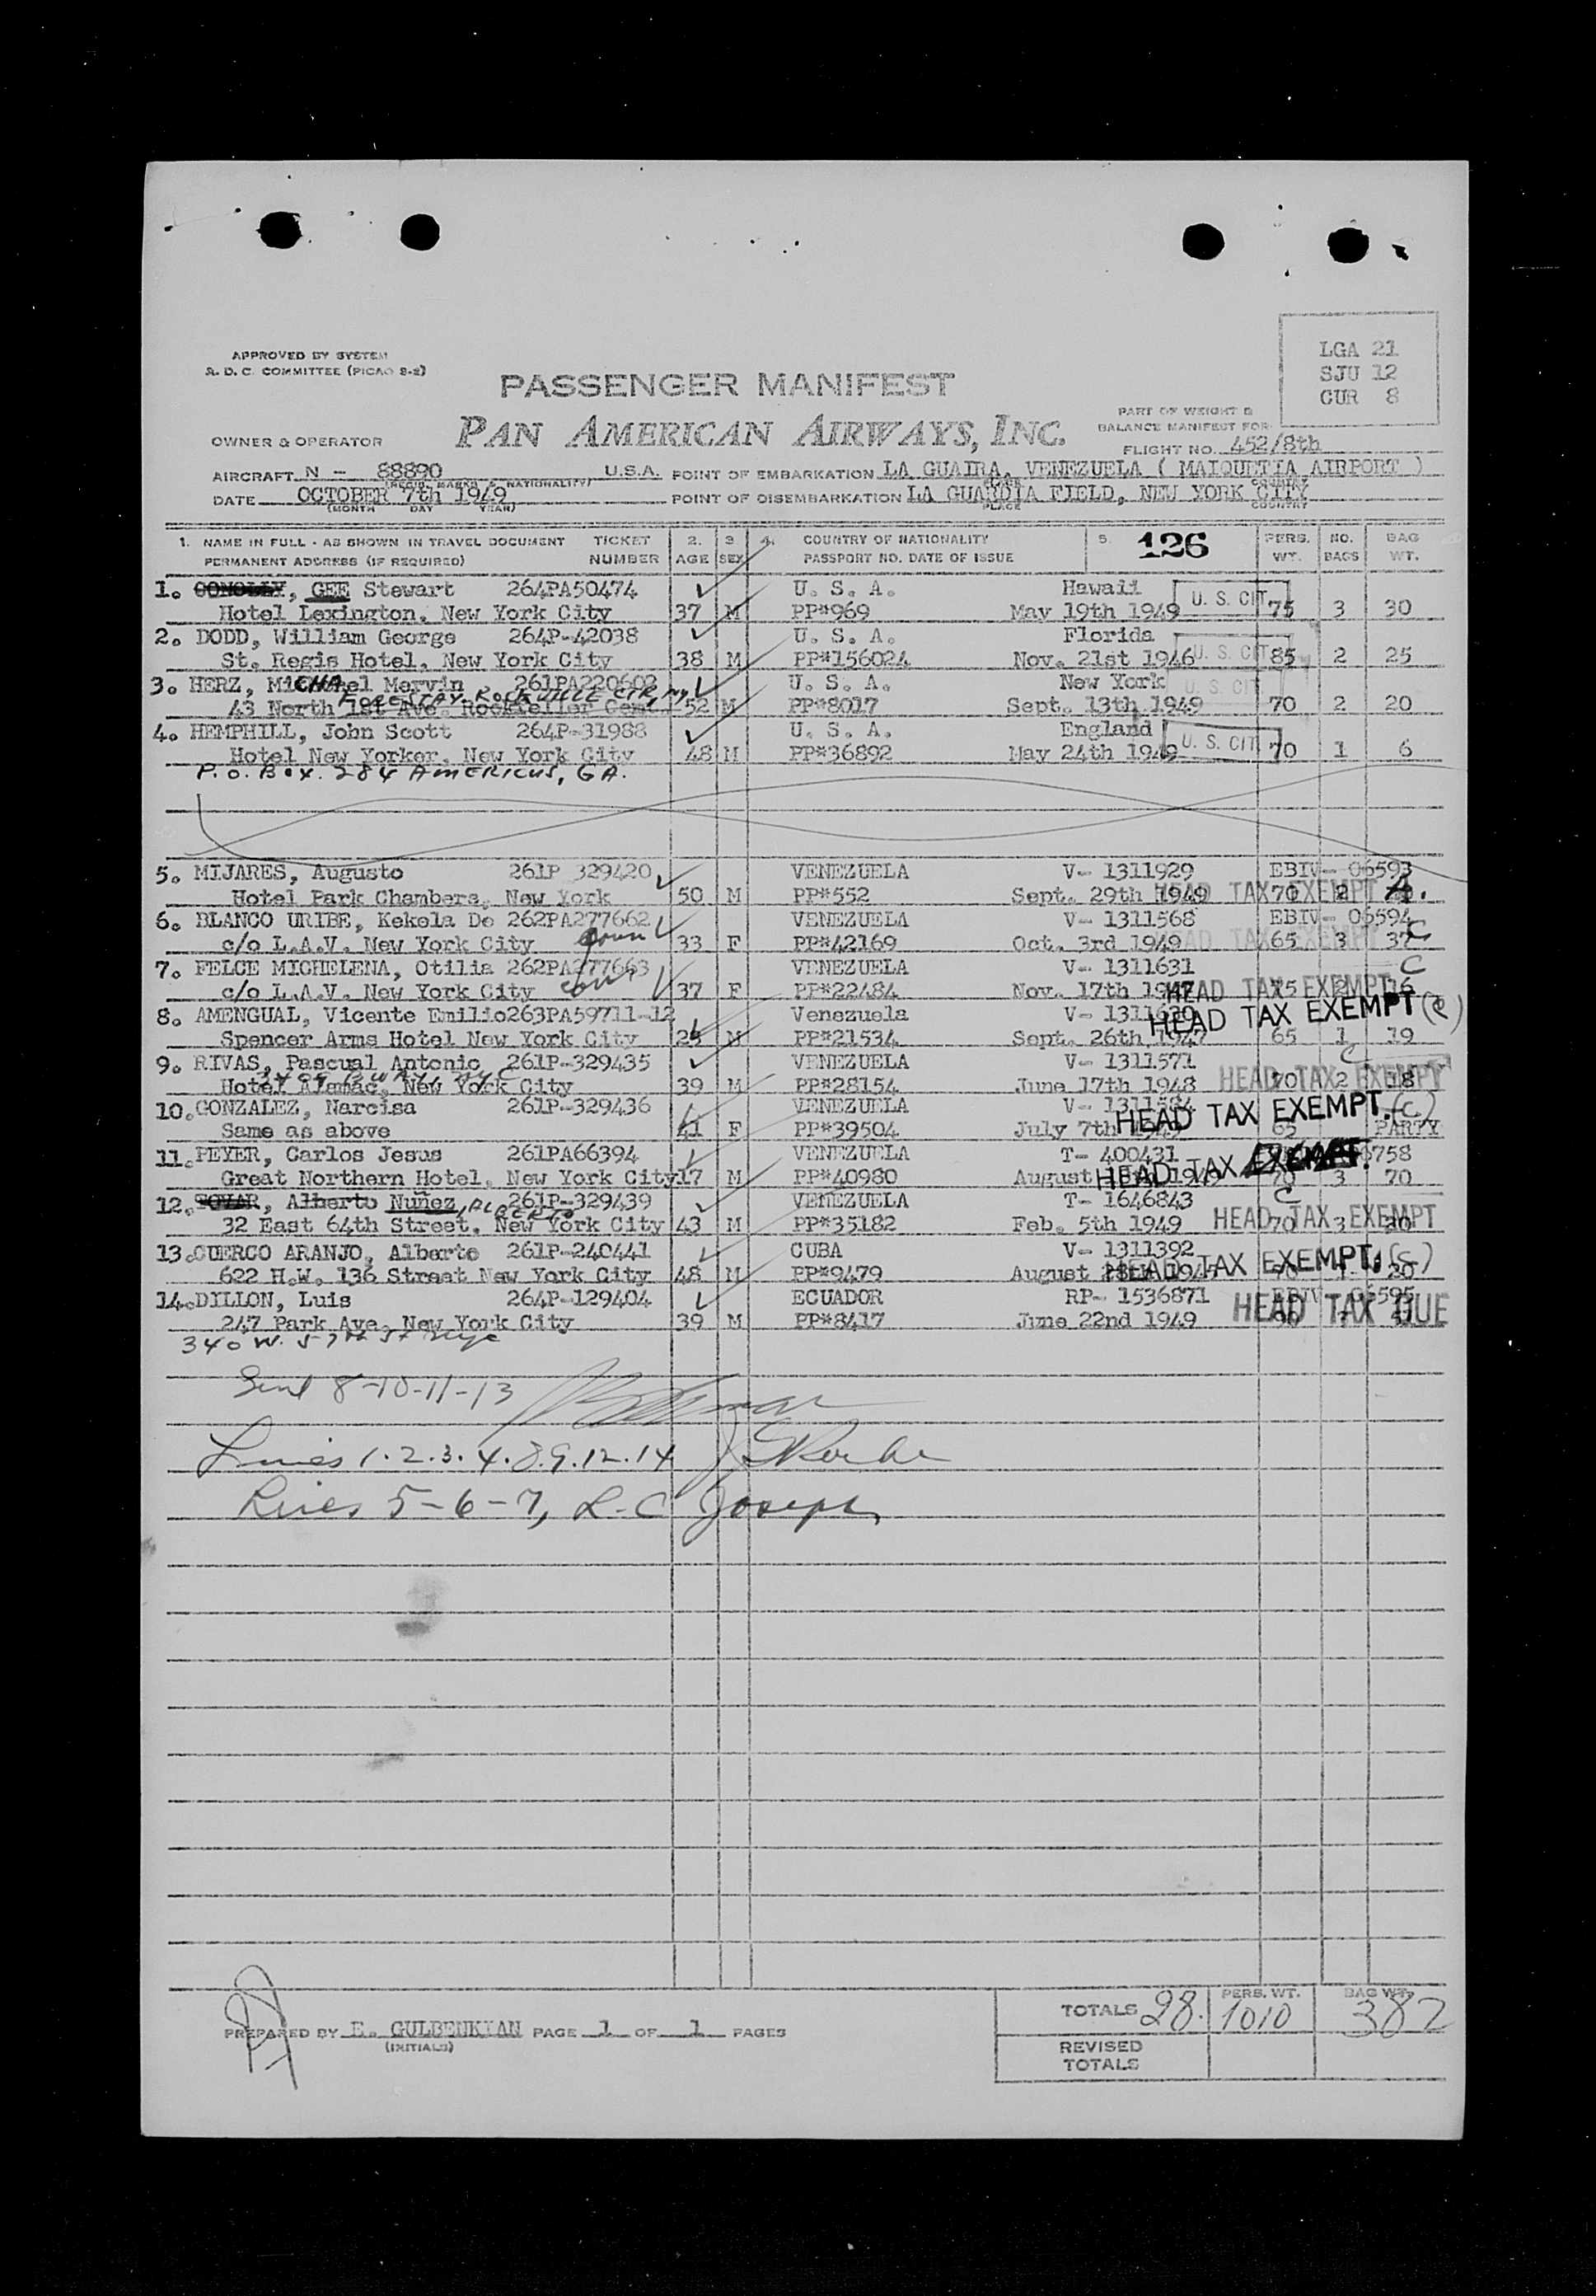 APPROVED BY SYSTEM
A. D. C. COMMITTEE (PICAO 8-2)
LGA 21
SJU 12
CUR 8
PASSENGER MANIFEST
PAN AMERICAN AIRWAYS, INC.
PART OF WEIGHT &
BALANCE MANIFEST FOR
OWNER & OPERATOR
FLIGHT NO. 452/8th
AIRCRAFT N - 88890 U.S.A. POINT OF EMBARKATION LA GUAIRA, VENEZUELA ( MAIQUETIA AIRPORT )
(REGIS. MARKS & NATIONALITY) PLACE COUNTRY
DATE OCTOBER 7th 1949 POINT OF DISEMBARKATION LA GUARDIA FIELD, NEW YORK CITY
(MONTH DAY YEAR) PLACE COUNTRY
1. NAME IN FULL - AS SHOWN IN TRAVEL DOCUMENT TICKET 2. 3. 4. COUNTRY OF NATIONALITY 5. 126 PERS. NO. BAG
PERMANENT ADDRESS (IF REQUIRED) NUMBER AGE SEX PASSPORT NO. DATE OF ISSUE WT. BAGS WT.
1. CONOLLY, GEE Stewart 264PA50474 U. S. A. Hawaii U. S. CIT.
Hotel Lexington, New York City 37 M PP#969 May 19th 1949 75 3 30
2. DODD, William George 264P-42038 U. S. A. Florida
St. Regis Hotel, New York City 38 M PP#156024 Nov. 21st 1946 U. S. CIT 85 2 25
3. HERZ, MiCHAel Mervin 261PA220602 U. S. A. New York U. S. CIT
FORESTAV, ROCKVILLE CTR, NY
43 North 1st Ave. Rockfeller Cent. 52 M PP#8017 Sept. 13th 1949 70 2 20
4. HEMPHILL, John Scott 264P-31988 U. S. A. England
Hotel New Yorker, New York City 48 M PP#36892 May 24th 1949 U. S. CIT. 70 1 6
P.O. Box. 284 AMERICUS, GA.
5. MIJARES, Augusto 261P 329420 VENEZUELA V- 1311929 EBIV- 06593
Hotel Park Chambers, New York 50 M PP#552 Sept. 29th 1949 HEAD TAX EXEMPT A. 70 2
6. BLANCO URIBE, Kekela De 262PA277662 VENEZUELA V- 1311568 EBIV- 06594
c/o L.A.V. New York City 33 F PP#42169 Oct. 3rd 1949 HEAD TAX EXEMPT C 65 3 37
7. FELCE MICHELENA, Otilia 262PA277663 VENEZUELA V- 1311631 C
c/o L.A.V. New York City 37 F PP#22484 Nov. 17th 1947 HEAD TAX EXEMPT 2 16
8. AMENGUAL, Vicente Emilio263PA59711-12 Venezuela V- HEAD TAX EXEMPT (c)
Spencer Arms Hotel New York City M PP#21534 Sept. 26th 1947 65 1 19
9. RIVAS, Pascual Antonio 261P-329435 VENEZUELA V- 1311571 C
Hotel Alamac, New York City 39 M PP#28154 June 17th 1948 HEAD TAX EXEMPT 70 2 18
10. GONZALEZ, Narcisa 261P-329436 VENEZUELA V- 1311584 HEAD TAX EXEMPT. (c)
Same as above 41 F PP#39504 July 7th 1949 65 PARTY
11. PEYER, Carlos Jesus 261PA66394 VENEZUELA T- 400431
Great Northern Hotel, New York City 17 M PP#40980 August HEAD TAX EXEMPT. 70 3 70
12. TOVAR, Alberto Nuñez, ALBERTO 261P-329439 VENEZUELA T- 1646843 C
32 East 64th Street, New York City 43 M PP#35182 Feb. 5th 1949 HEAD TAX EXEMPT 70 3
13. CUERCO ARANJO, Alberto 261P-240441 CUBA V- 1311392
622 H.W. 136 Street New York City 48 M PP#9479 August HEAD TAX EXEMPT. (c) 20
14. DILLON, Luis 264P-129404 ECUADOR RP- 1536871 EBIV- 06595
247 Park Ave, New York City 39 M PP#8417 June 22nd 1949 HEAD TAX DUE
340 W. 57th St NYC
8-10-11-13
Lines 1.2.3.4.8.9.12.14
Lines 5-6-7, L-C Joseph
TOTALS 28. PERS. WT. 1010 BAG WT. 382
PREPARED BY E. GULBENKIAN PAGE 1 OF 1 PAGES
(INITIALS)
REVISED
TOTALS